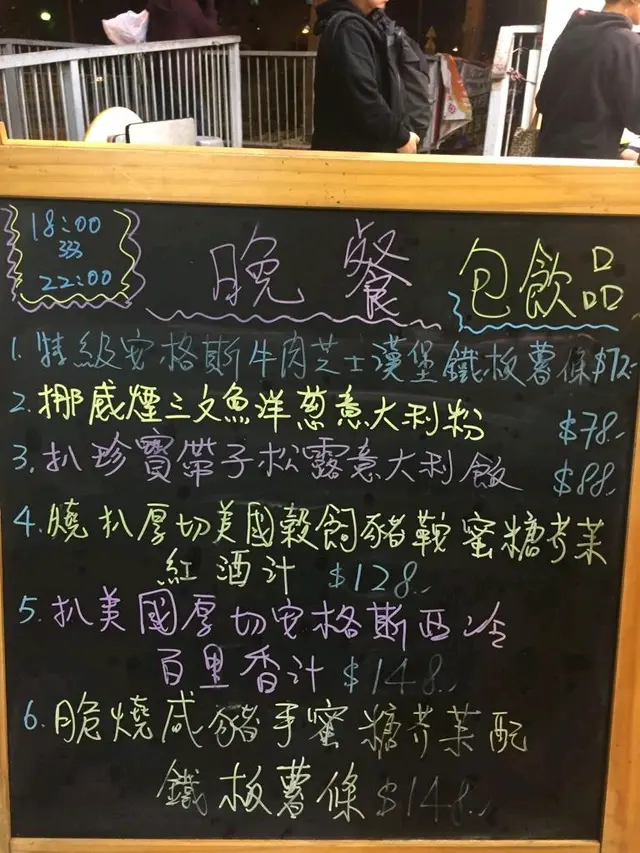 18:00
22:00
晚餐
包飲品
1. 特級安格斯牛肉芝士漢堡鐵板薯條 $72.-
2. 挪威煙三文魚洋蔥意大利粉 $78.-
3. 扒珍寶帶子松露意大利飯 $88.-
4. 燒扒厚切美國穀飼豬鞍蜜糖芥茉
紅酒汁 $128.-
5. 扒美國厚切安格斯西冷
百里香汁 $148.-
6. 脆燒咸豬手蜜糖芥茉配
鐵板薯條 $148.-